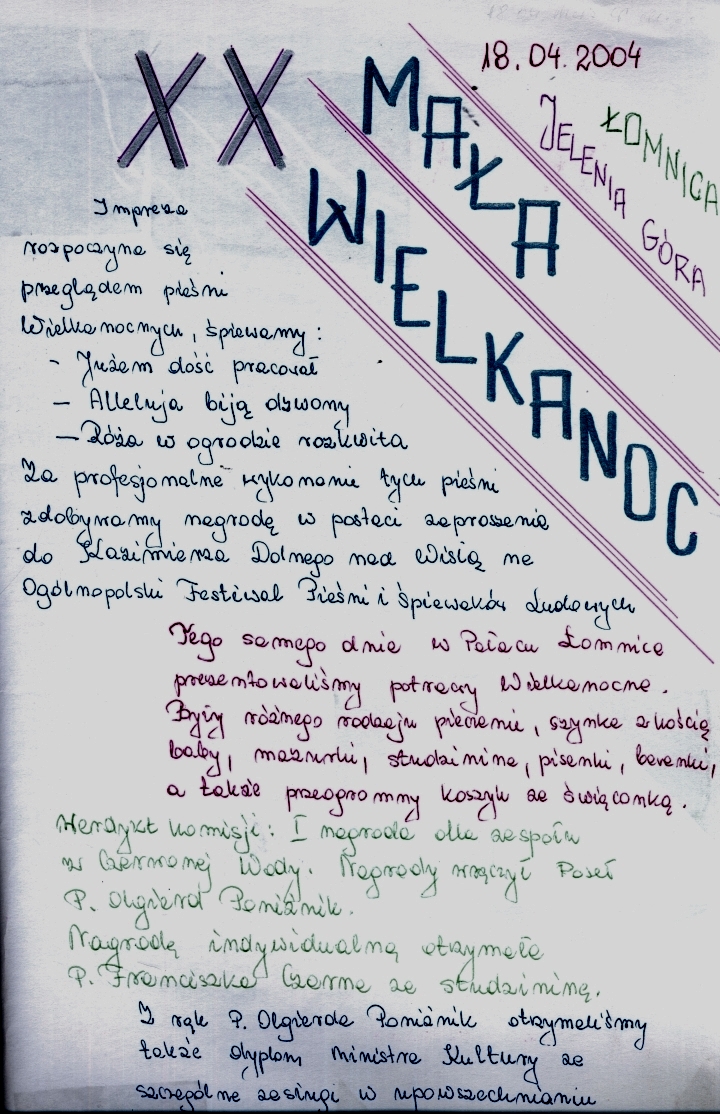 18.04.2004
ŁOMNICA
JELENIA GÓRA
XX MAŁA
WIELKANOC
Impreza
rozpoczyna się
przeglądem pieśni
Wielkanocnych, śpiewamy:
- Jużem dość pracował
- Alleluja biją dzwony
- Róża w ogrodzie rozkwita
Za profesjonalne wykonanie tych pieśni
zdobywamy nagrodę w postaci zaproszenia
do Kazimierza Dolnego nad Wisłą na
Ogólnopolski Festiwal Pieśni i Śpiewaków Ludowych
Tego samego dnia w Pałacu Łomnica
prezentowaliśmy potrawy Wielkanocne.
Były różnego rodzaju pieczenie, szynka z kością,
baby, mazurki, studzinina, pisanki, baranki,
a także przeogromny koszyk ze święconką.
Werdykt komisji: I nagroda dla zespołu
z Czerwonej Wody. Nagrody wręczył Poseł
P. Olgierd Poniźnik.
Nagrodę indywidualną otrzymała
P. Franciszka Czarna za studzininę.
Z rąk P. Olgierda Poniźnik otrzymaliśmy
także dyplom ministra Kultury za
szczególne zasługi w upowszechnianiu